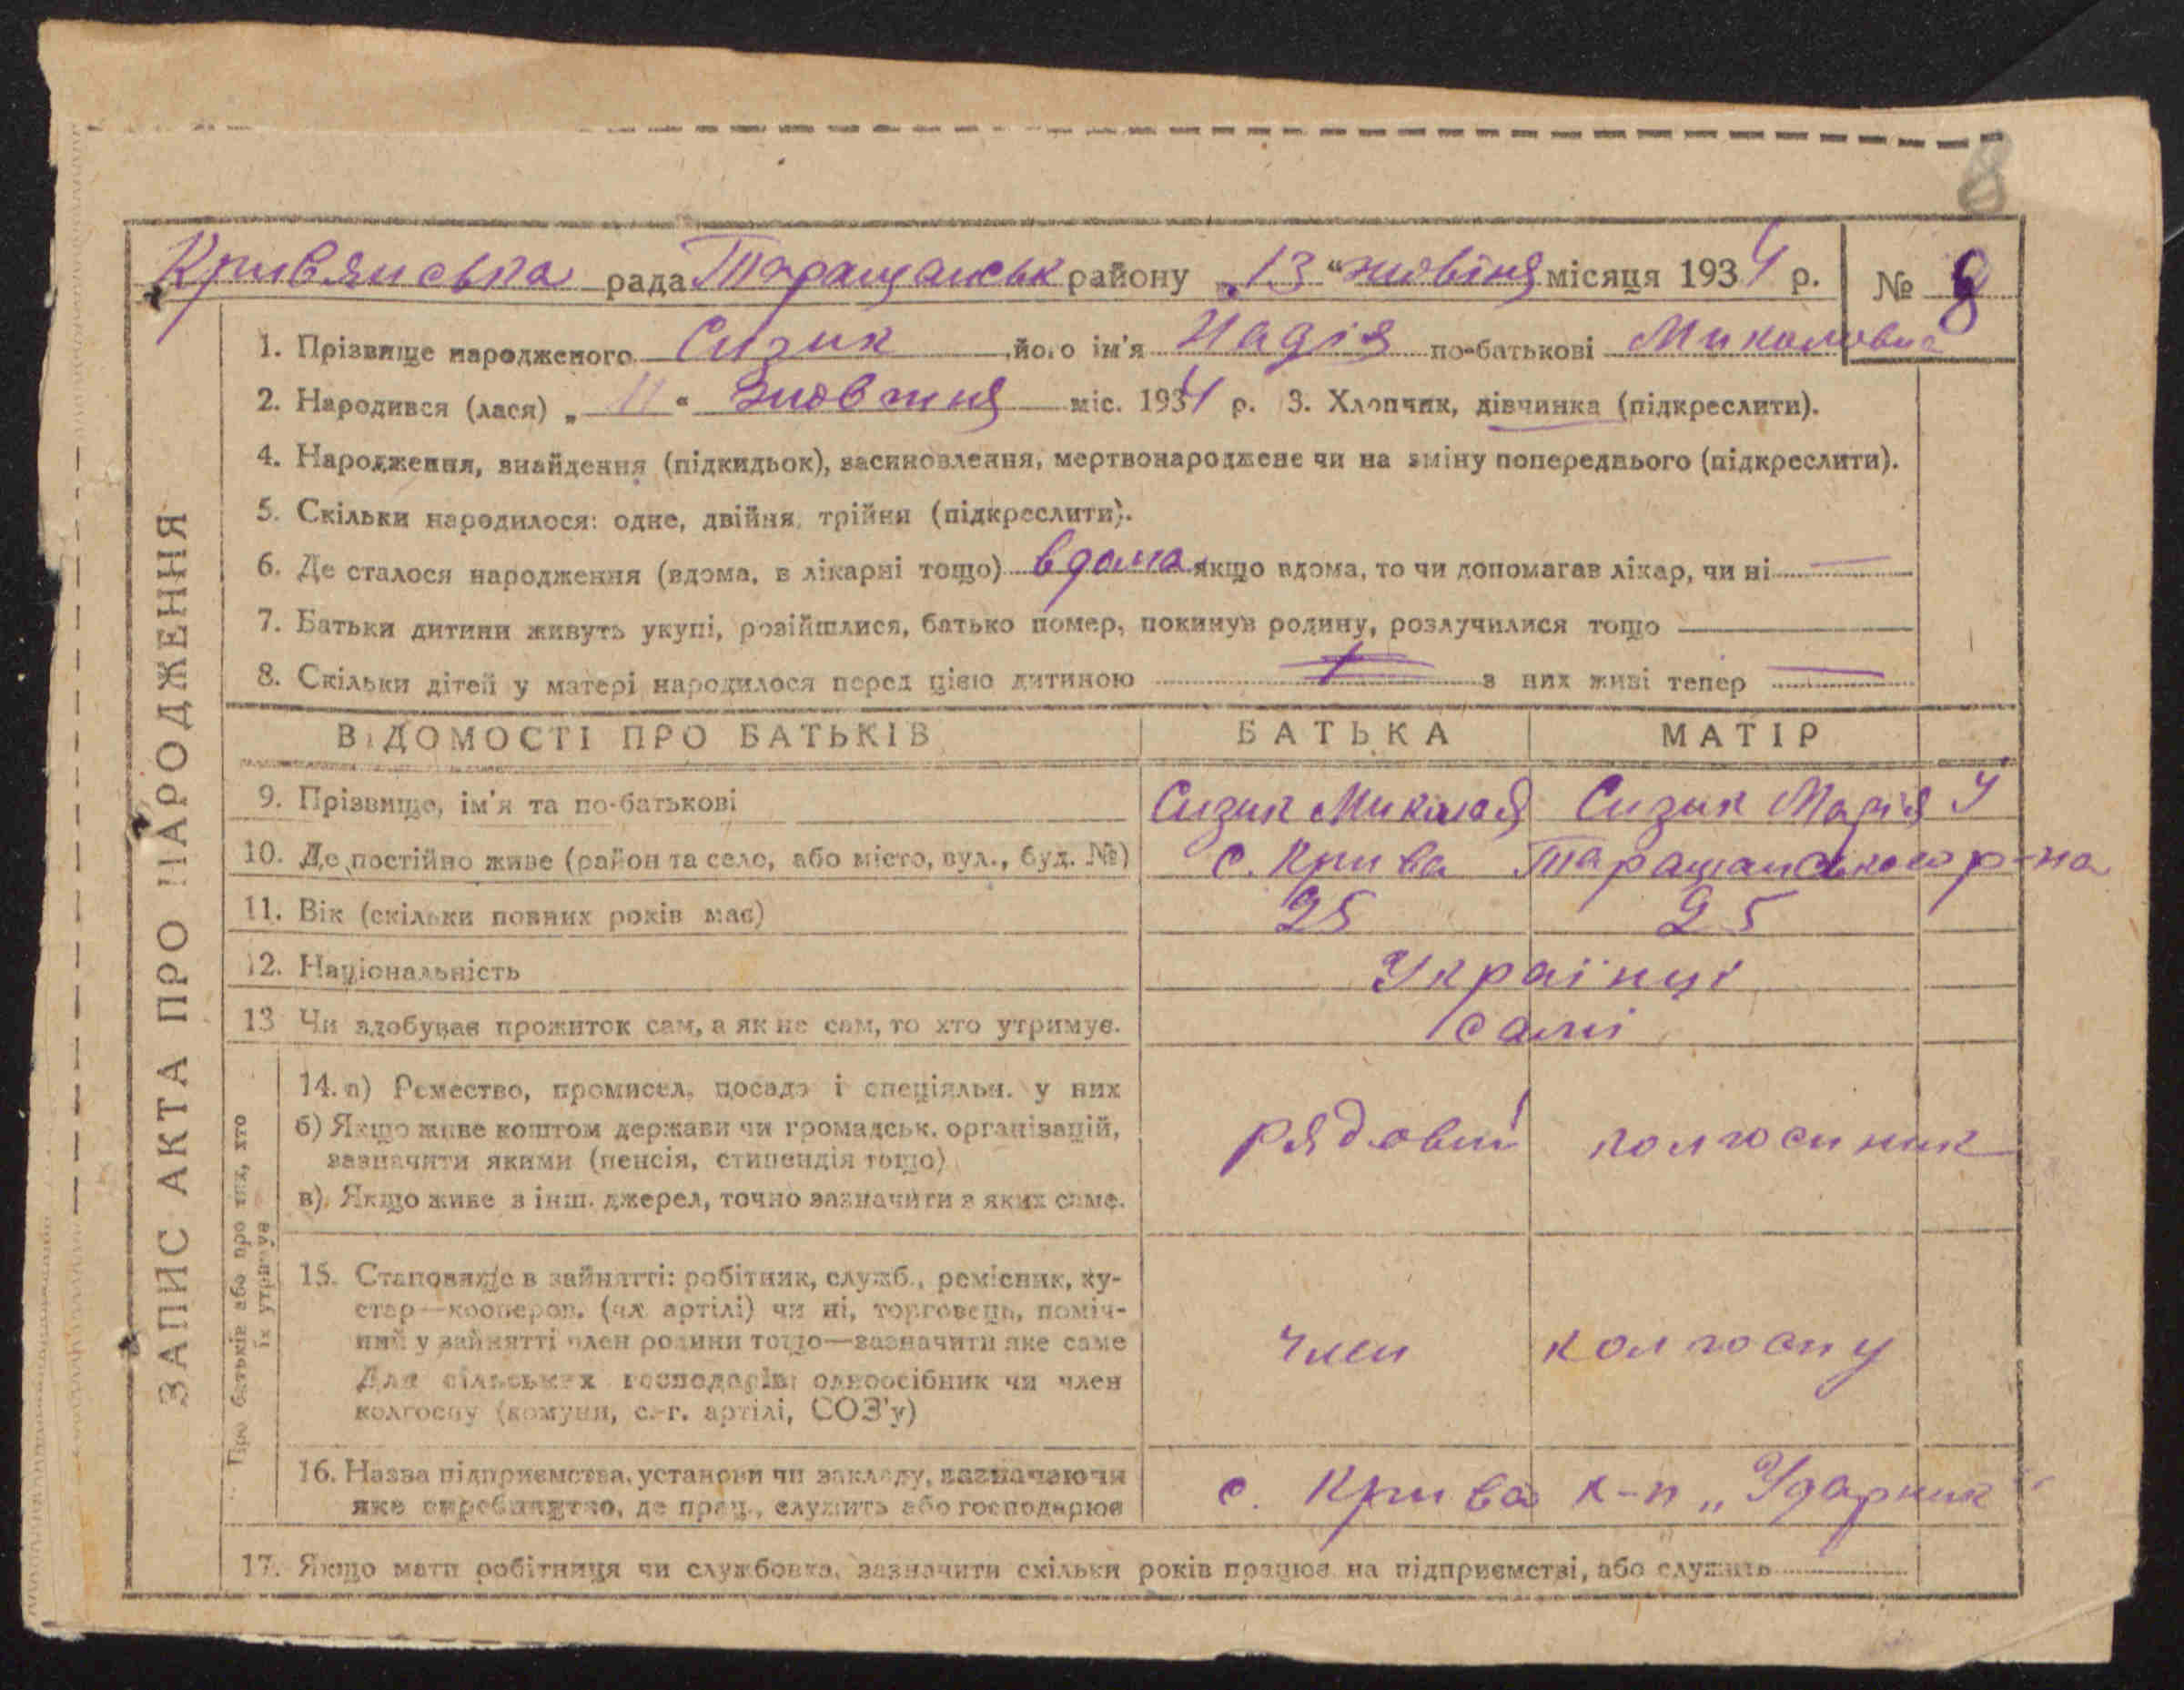 8
Кривянська рада Таращанськ району „13“ жовтня місяця 1934 р. № 8
1. Прізвище народженого Сизик його ім'я Надія по-батькові Миколовна
2. Народився (лася) „11“ жовтня міс. 1934 р. 3. Хлопчик, дівчинка (підкреслити).
4. Народження, знайдення (підкидьок), засиновлення, мертвонароджене чи на зміну попереднього (підкреслити).
5. Скільки народилося: одне, двійня, трійня (підкреслити).
6. Де сталося народження (вдома, в лікарні тощо) вдома якщо вдома, то чи допомагав лікар, чи ні —
7. Батьки дитини живуть укупі, розійшлися, батько помер, покинув родину, розлучилися тощо
8. Скільки дітей у матері народилося перед цією дитиною з них живі тепер —
ВІДОМОСТІ ПРО БАТЬКІВ БАТЬКА МАТІР
9. Прізвище, ім'я та по-батькові Сизик Микола Я Сизик Марія У
10. Де постійно живе (район та село, або місто, вул., буд. №) с. Крива Таращанського р-на
11. Вік (скільки повних років має) 25 25
12. Національність Українці
13 Чи здобуває прожиток сам, а як не сам, то хто утримує. самі
14. а) Ремество, промисел, посада і спеціяльн. у них
б) Якщо живе коштом держави чи громадськ. організацій,
зазначити якими (пенсія, стипендія тощо)
в) Якщо живе з інш. джерел, точно зазначити з яких саме.
рядовий колгоспник
15. Становище в зайнятті: робітник, служб., ремісник, ку-
стар—коопепов. (чл. артілі) чи ні, торговець, поміч-
ний у зайнятті член родини тощо—зазначити яке саме
Для сільських господарів: одноосібник чи член
колгоспу (комуни, с.-г. артілі, СОЗ'у)
член колгоспу
16. Назва підприємства, установи чи закладу, зазначаючи
яке виробництво, де прац., служить або господарює
с. Крива к-п „Ударник“
17. Якщо мати робітниця чи службовка, зазначити скільки років працює на підприємстві, або служить
ЗАПИС АКТА ПРО НАРОДЖЕННЯ
Про батьків або про тих, хто
їх утримує